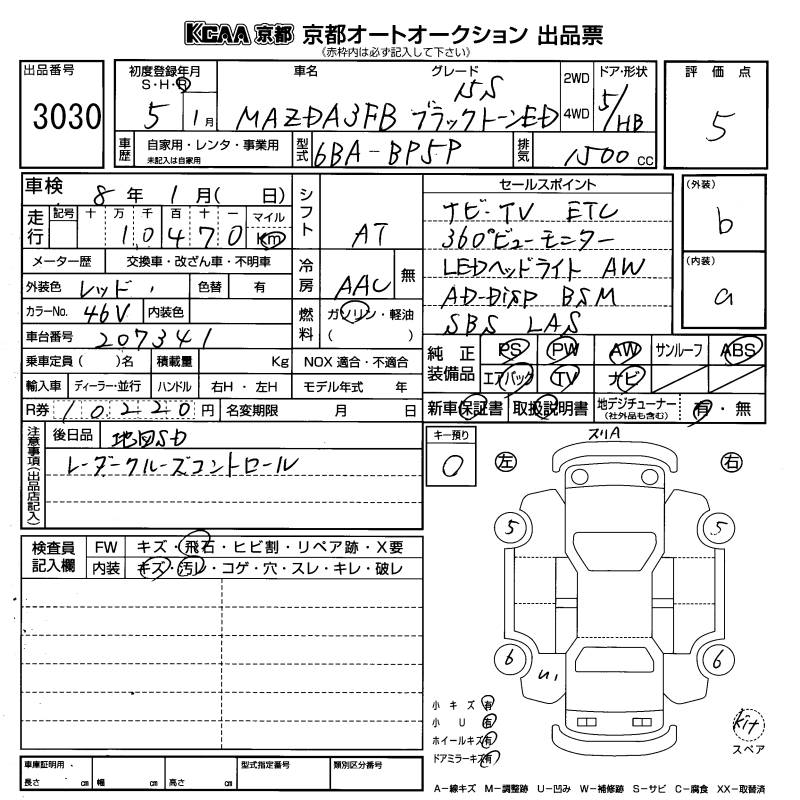 KCAA 京都 京都オートオークション 出品票
(赤枠内は必ず記入して下さい)
出品番号 3030
初度登録年月 S・H・R 5 1月
車名 MAZDA3FB
グレード 15S ブラックトーンED
2WD 4WD
ドア・形状 5/HB
評価点 5
車歴 自家用・レンタ・事業用 未記入は自家用
型式 6BA-BP5P
排気 1500 cc
車検 8年 1月( 日)
シフト AT
走行 記号 十 万 千 百 十 一 マイル km
10470
メーター歴 交換車・改ざん車・不明車
冷房 AAC 無
外装色 レッド 色替 有
カラーNo. 46V 内装色
燃料 ガソリン・軽油 ( )
車台番号 207341
乗車定員( )名 積載量 Kg NOX 適合・不適合
輸入車 ディーラー・並行 ハンドル 右H・左H モデル年式 年
R券 10220円 名変期限 月 日
セールスポイント
ナビ・TV ETC
360°ビューモニター
LEDヘッドライト AW
AD-Disp BSM
SBS LAS
(外装) b
(内装) a
純正装備品 PS PW AW サンルーフ ABS
エアバック TV ナビ
新車保証書 取扱説明書 地デジチューナー (社外品も含む) 有・無
注意事項(出品店記入)
後日品 地図SD
レーダークルーズコントロール
キー預り 0
スリA
左 右
5 5
6 6
U1
検査員記入欄 FW キズ・飛石・ヒビ割・リペア跡・X要
内装 キズ・汚レ・コゲ・穴・スレ・キレ・破レ
小キズ 有
小U 有
ホイールキズ 有
ドアミラーキズ 有
Kit
スペア
車庫証明用・長さ cm 幅 cm 高さ cm 型式指定番号 類別区分番号
A-線キズ M-調整跡 U-凹み W-補修跡 S-サビ C-腐食 XX-取替済